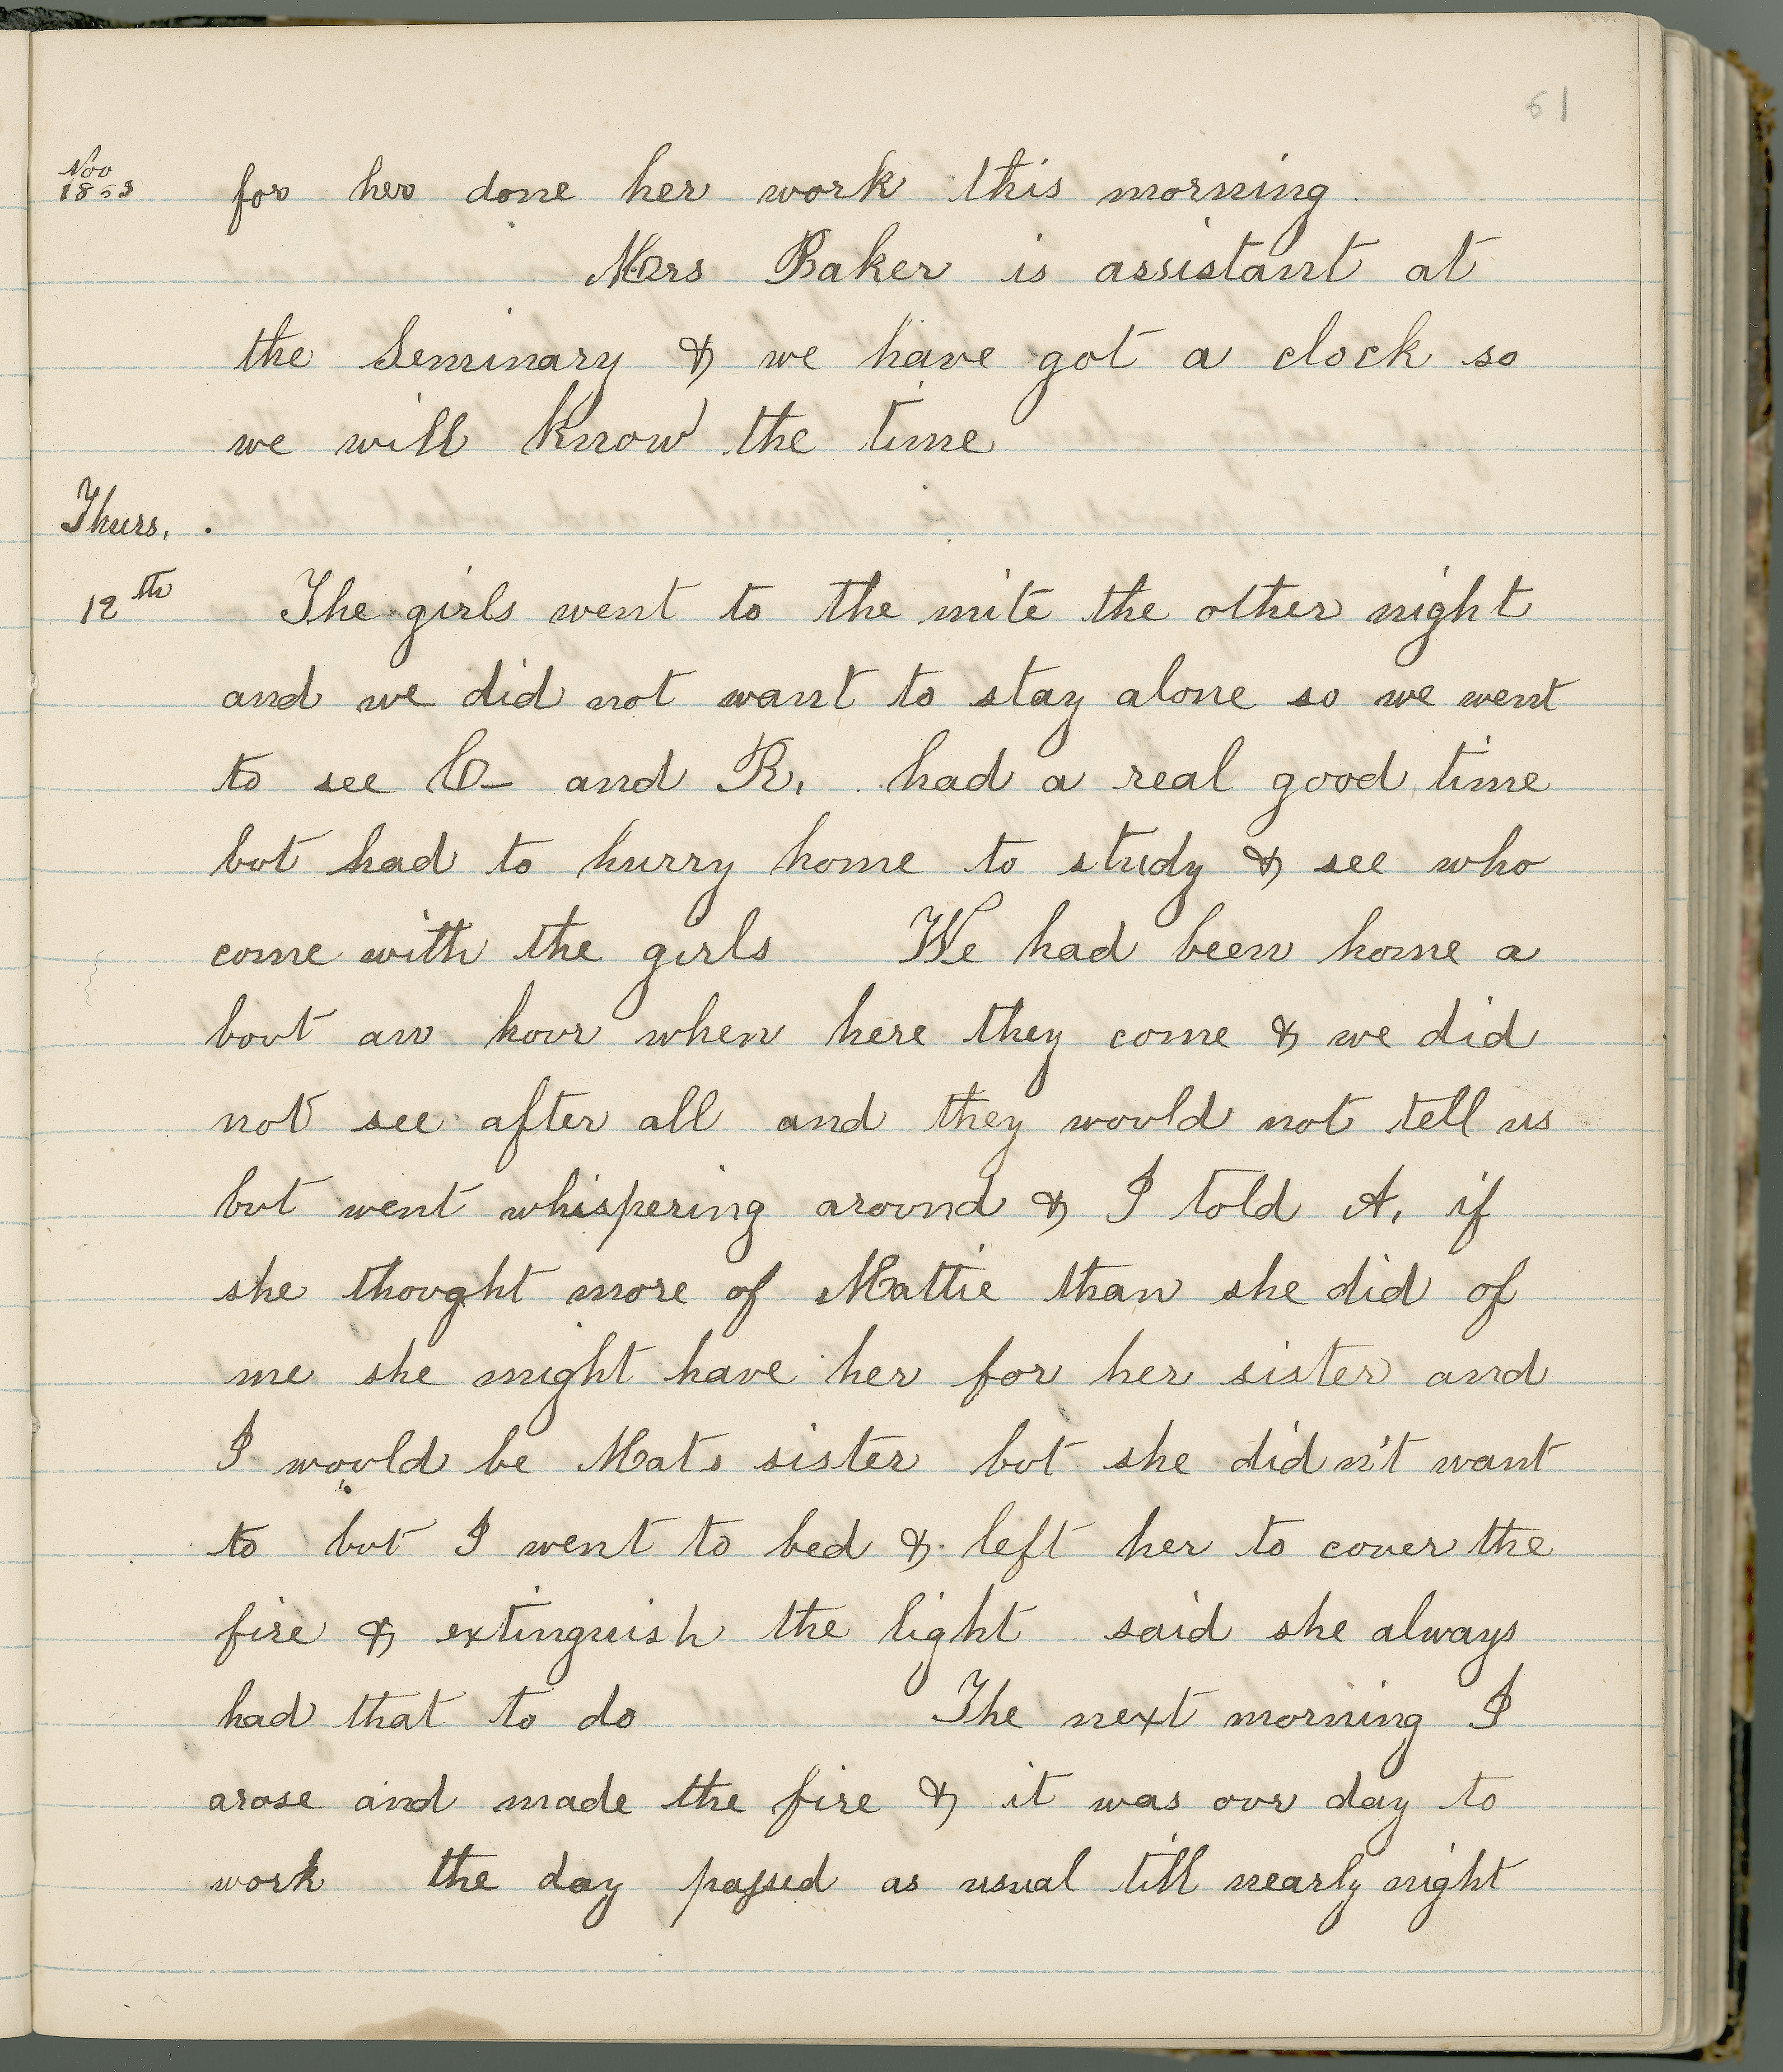 61
Nov
1863
for her done her work this morning
Mrs Baker is assistant at
the Seminary & we have got a clock so
we will know the time
Thurs.
12th The girls went to the mite the other night
and we did not want to stay alone so we went
to see O- and R. had a real good time
but had to hurry home to study & see who
come with the girls We had been home a
bout an hour when here they come & we did
not see after all and they would not tell us
but went whispering around & I told A. if
she thought more of Mattie than she did of
me she might have her for her sister and
I would be Mats sister but she didn't want
to but I went to bed & left her to cover the
fire & extinguish the light said she always
had that to do The next morning I
arose and made the fire & it was our day to
work the day passed as usual till nearly night